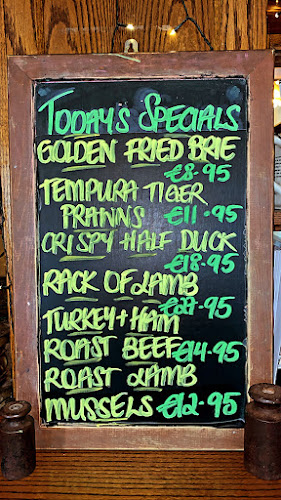 TODAY'S SPECIALS
GOLDEN FRIED BRIE
€8.95
TEMPURA TIGER
PRAWNS €11.95
CRISPY HALF DUCK
€18.95
RACK OF LAMB
€27.95
TURKEY + HAM
ROAST BEEF €14.95
ROAST LAMB
MUSSELS €12.95